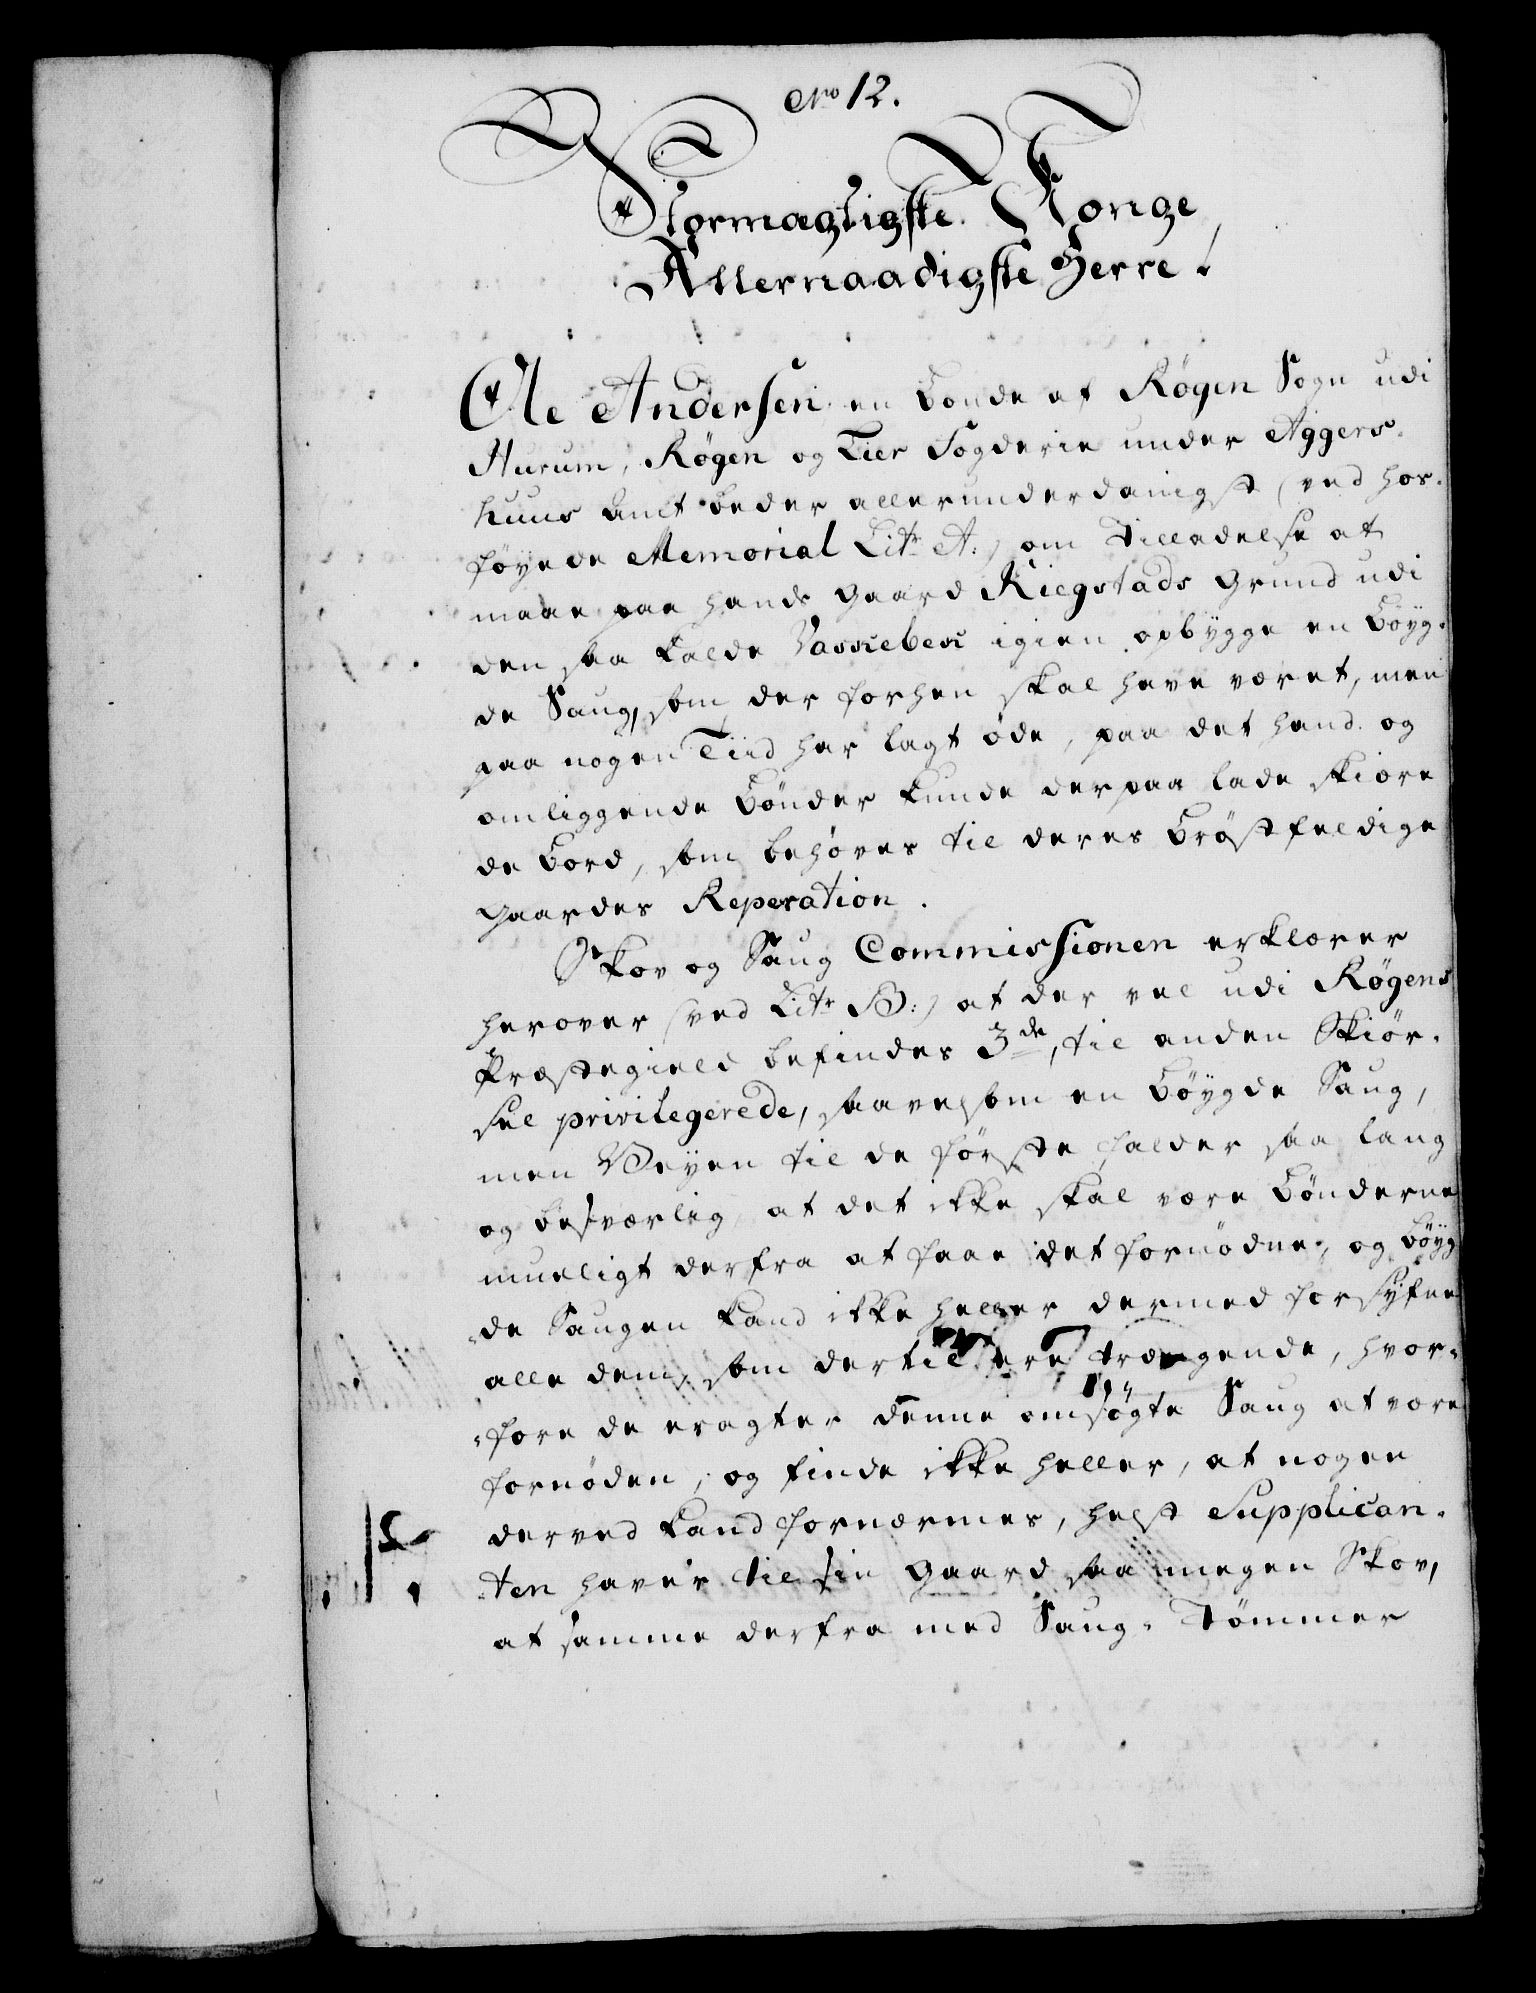 No 12.
Stormægtigste Konge,
Allernaadigste Herre!
Ole Andersen en Bonde af Røgen Sogn udi
Hurum, Røgen og Lier Fogderie under Aggers-
huus Amt beder allerunderdanigst (ved hos-
føyede Memorial Litr A:) om Tilladelse at
maae paa hands Gaard Kiegstads Grund udi
den saa kalde igien opbygge en Böyg-
de Saug, som der forhen skal have været, men
paa nogen Tiid har lagt øde, paa det hand og
omliggende Bönder kunde derpaa lade skiære
de Bord, som behøves til deres Bröstfeldige
Gaardes Reperation.
Skov og Saug Commissionen erklærer
herover (ved Litr B:) at der vel udi Røgens
Præstegield befindes 3de, til anden Skiör-
sel privilegerede, saavelsom en Böygde Saug,
men Veyen til de förste falder saa lang
og besværlig, at det ikke skal være Bönderne
mueligt derfra at faae det fornödne, og Böyg
de Saugen kand ikke heller dermed forsyne
alle dem, som dertil ere trængende, hvor-
fore de eragter denne omsögte Saug at være
fornöden, og finde ikke heller, at nogen
derved kand fornærmes, helst Supplican-
ten haver til sin Gaard saa megen Skov,
at samme derfra med Saug-Tömmer